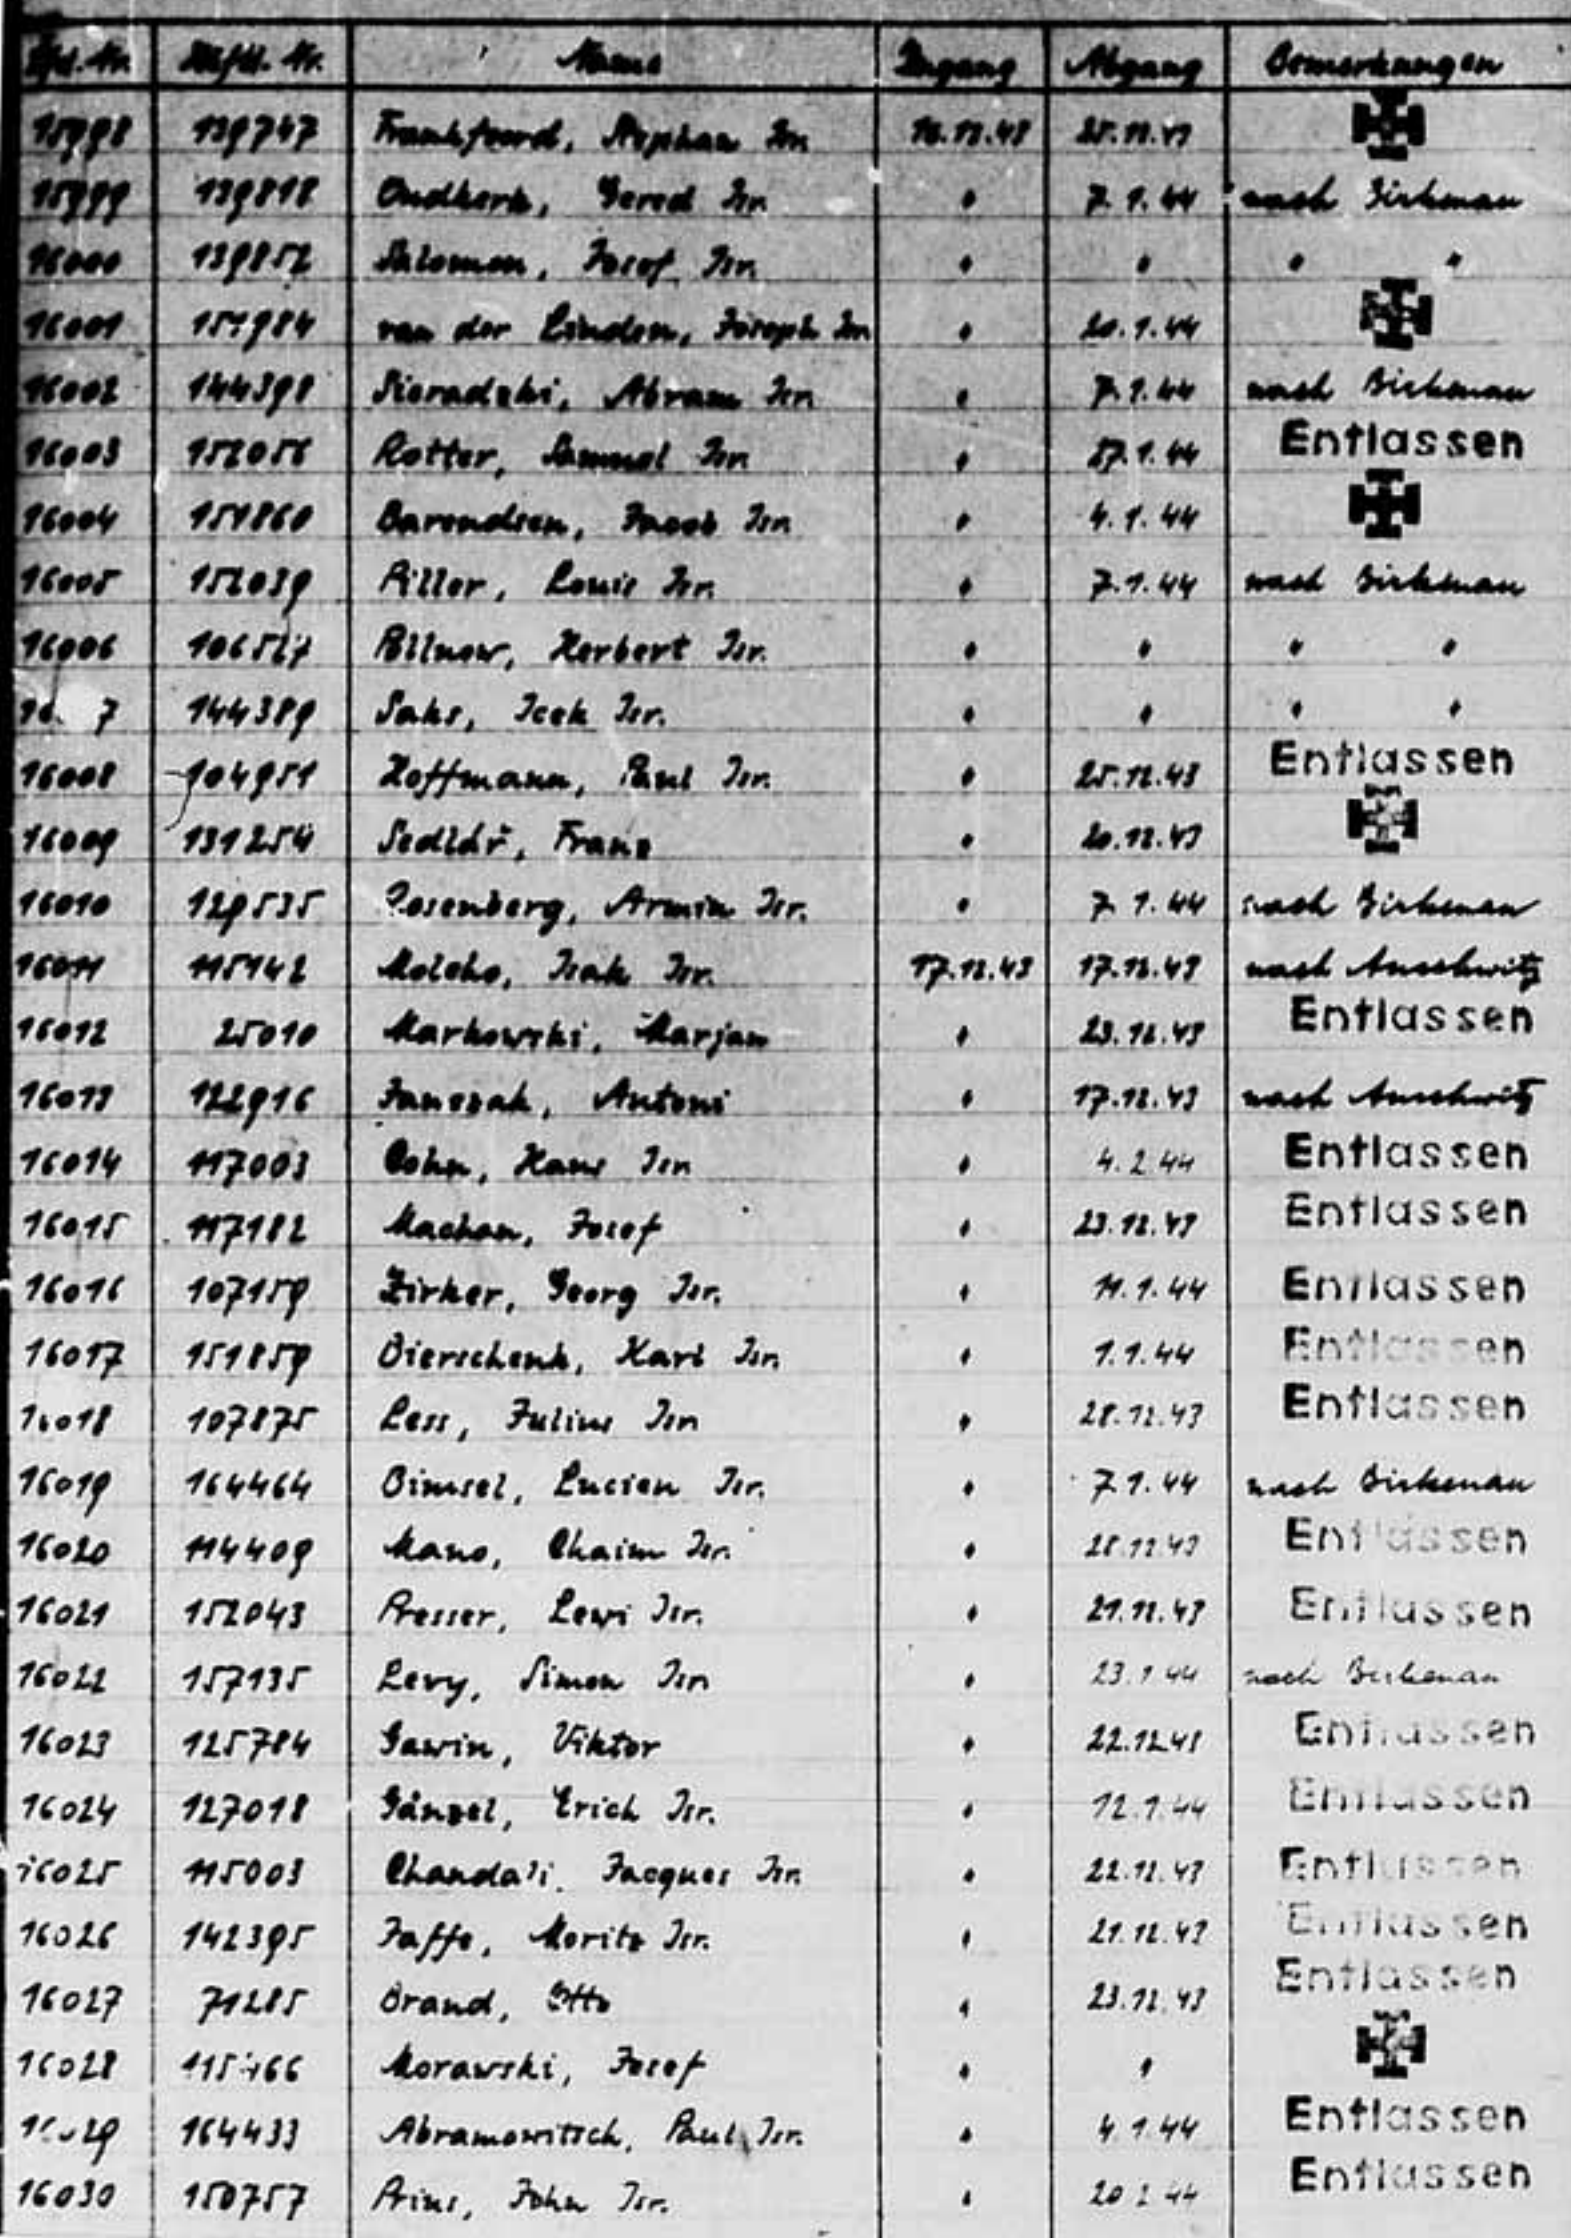 Lfd. Nr. Häftl. Nr. Name Zugang Abgang Bemerkungen
15998 139747 Frankfoord, Stephan Isr. 16.12.43 25.12.43
15999 139818 Oudkerk, Gered Isr. " 7.1.44 nach Birkenau
16000 139852 Salomon, Josef Isr. " " " "
16001 151984 van der Linden, Joseph Isr. " 20.1.44
16002 144398 Sieradzki, Abram Isr. " 7.1.44 nach Birkenau
16003 152056 Rotter, Samuel Isr. " 1.44 Entlassen
16004 151860 Barendsen, Jacob Isr. " 4.1.44
16005 152039 Piller, Louis Isr. " 7.1.44 nach Birkenau
16006 106527 Pillnow, Herbert Isr. " " " "
7 144389 Saks, Icek Isr. " " " "
16008 104951 Hoffmann, Paul Isr. " 25.12.43 Entlassen
16009 131254 Sedlář, Franz " 20.12.43
16010 129535 Rosenberg, Armin Isr. " 7.1.44 nach Birkenau
16011 115142 Molcho, Isak Isr. 17.12.43 17.12.43 nach Auschwitz
16012 25010 Markowski, Marjan " 23.12.43 Entlassen
16013 122916 Janczak, Antoni " 17.12.43 nach Auschwitz
16014 117003 Cohn, Hans Isr. " 4.2.44 Entlassen
16015 117182 Machan, Josef " 23.12.43 Entlassen
16016 107159 Zirker, Georg Isr. " 11.1.44 Entlassen
16017 151859 Bierschenk, Karl Isr. " 1.1.44 Entlassen
16018 107875 Less, Julius Isr. " 28.12.43 Entlassen
16019 164464 Bimsel, Lucien Isr. " 7.1.44 nach Birkenau
16020 114409 Mano, Chaim Isr. " 28.12.43 Entlassen
16021 152043 Presser, Lewi Isr. " 21.12.43 Entlassen
16022 157135 Levy, Simon Isr. " 23.1.44 nach Birkenau
16023 125784 Gawin, Viktor " 22.12.43 Entlassen
16024 127018 Gänzel, Erich Isr. " 12.1.44 Entlassen
16025 115003 Chandali, Jacques Isr. " 22.12.43 Entlassen
16026 142395 Jaffe, Moritz Isr. " 21.12.43 Entlassen
16027 71285 Brand, Otto " 23.12.43 Entlassen
16028 Morawski, Josef " "
16029 164433 Abramowitsch, Paul Isr. " 4.1.44 Entlassen
16030 150757 Prins, John Isr. " 20.2.44 Entlassen